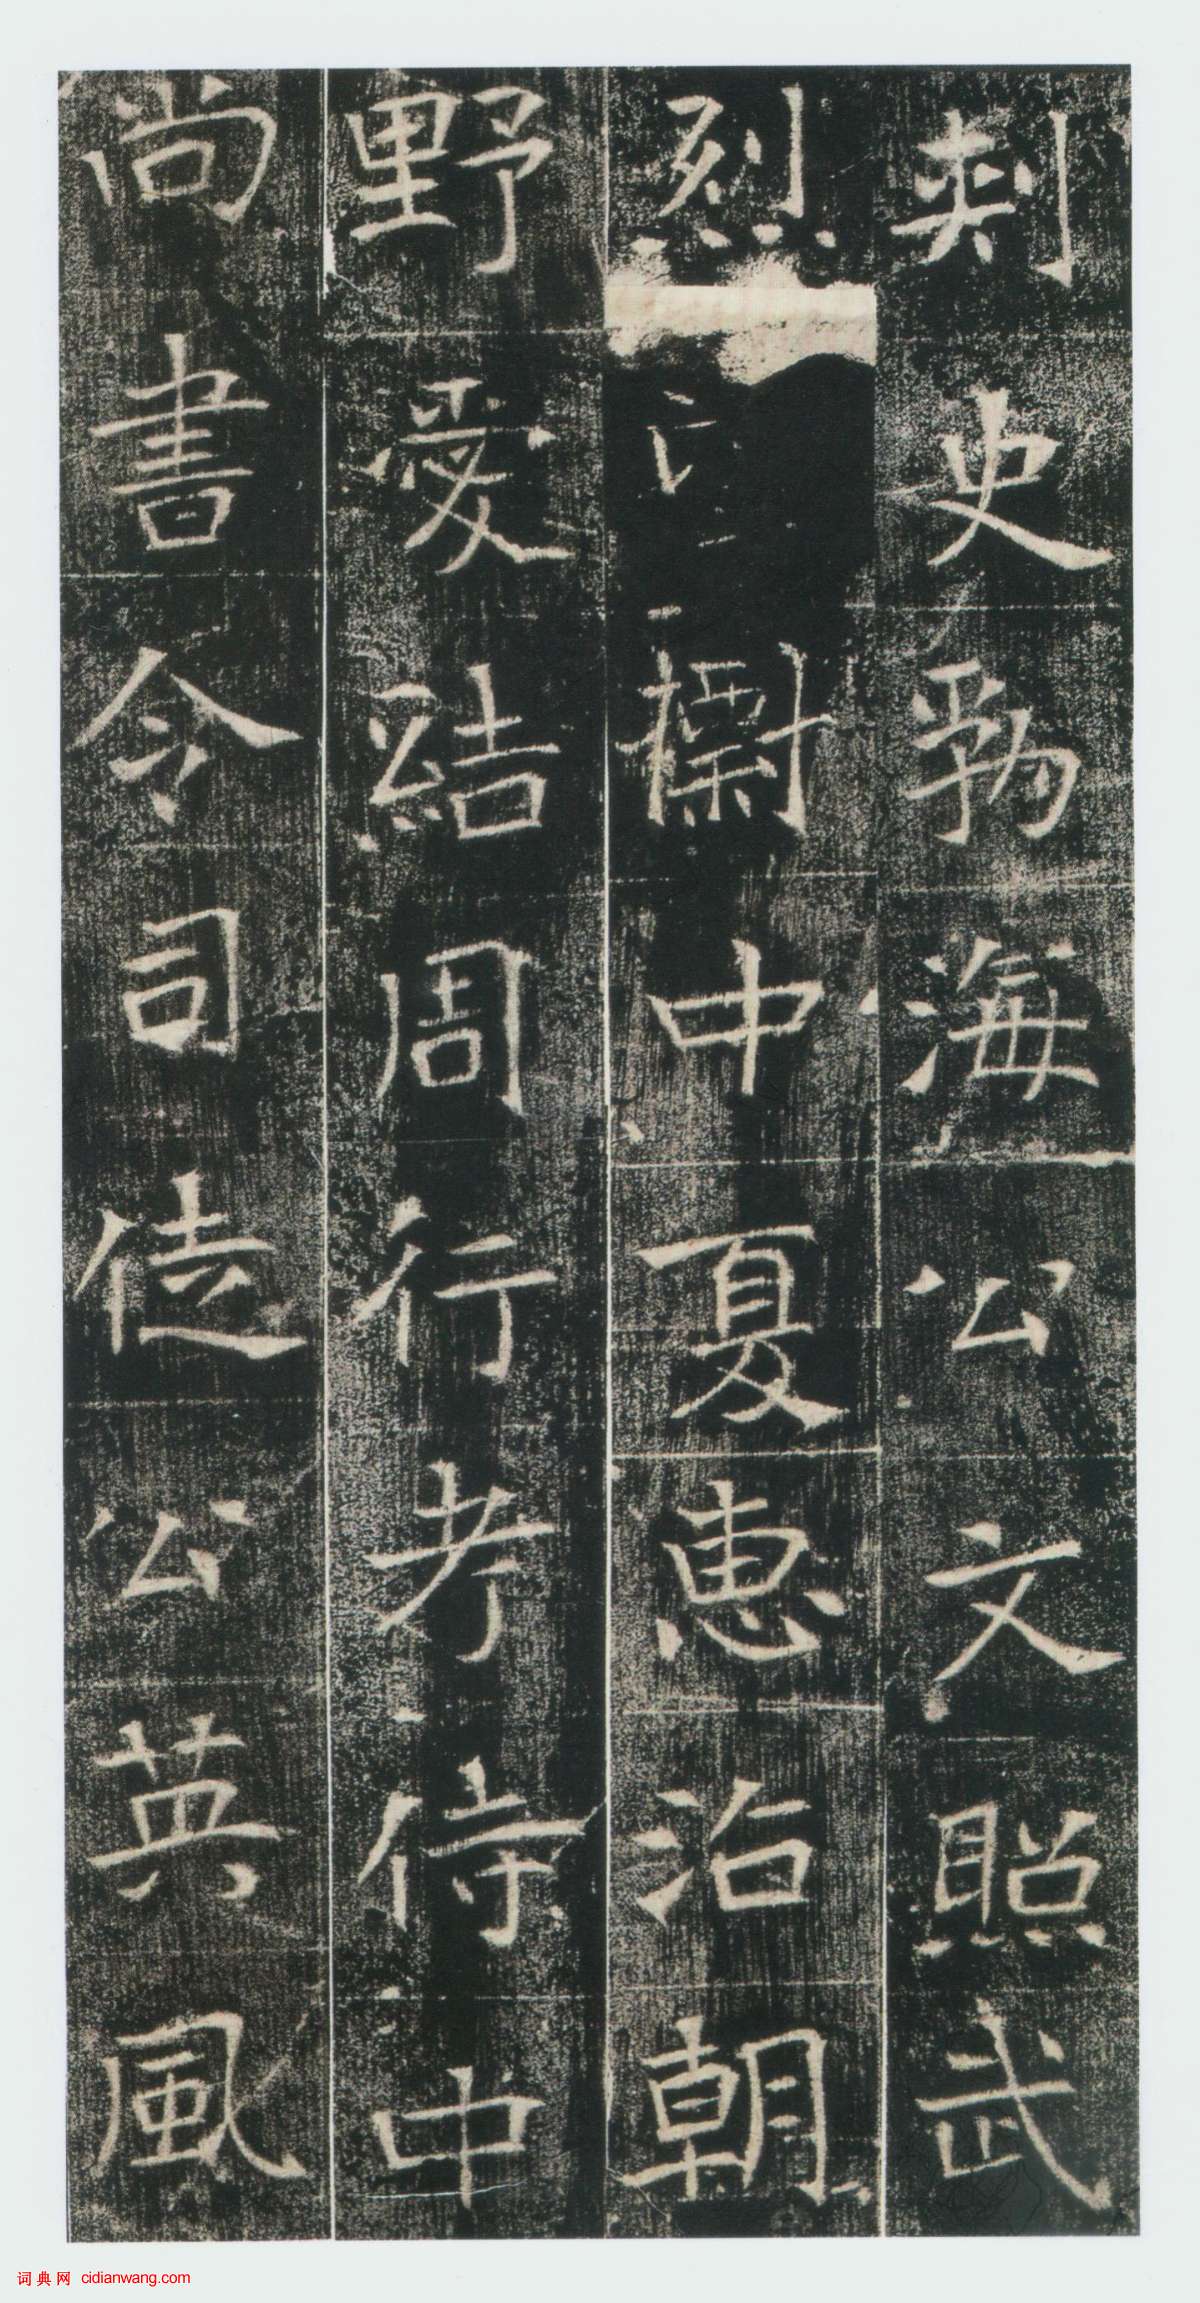 刺史勃海公文照武
烈中夏惠治朝
野愛結周行考侍中
尚書令司徒公英風
词典网 cidianwang.com